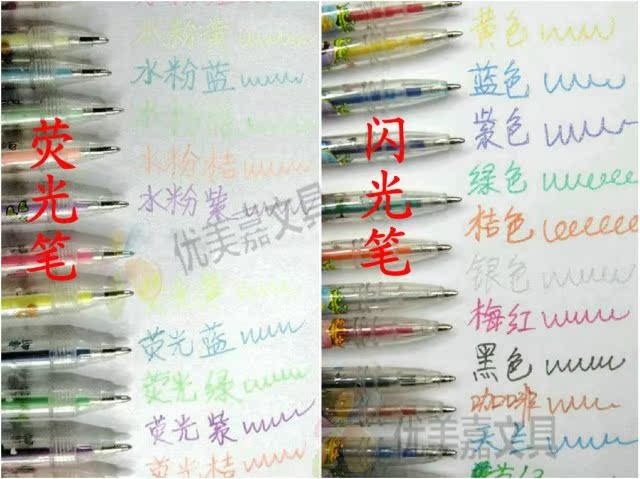 荧光笔
水粉黄
水粉蓝
水粉绿
水粉桔
水粉紫
荧光黄
荧光蓝
荧光绿
荧光紫
荧光桔
优美嘉文具
闪光笔
黄色
蓝色
紫色
绿色
桔色
银色
梅红
黑色
咖啡
天兰
优美嘉文具